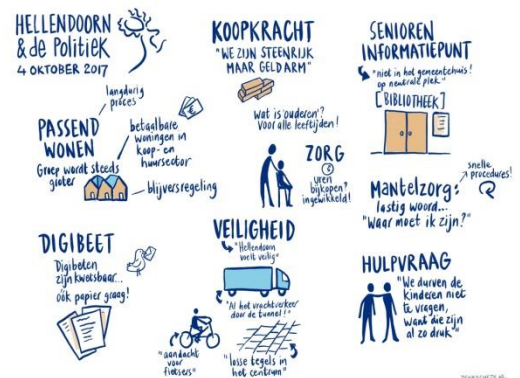 HELLENDOORN
& de Politiek
4 OKTOBER 2017
PASSEND
WONEN
Groep wordt steeds
groter
langdurig
proces
betaalbare
woningen in
koop- en
huursector
blijversregeling
DIGIBEET
Digibeten
zijn kwetsbaar...
óók papier graag!
KOOPKRACHT
"WE ZIJN STEENRIJK
MAAR GELDARM"
Wat is 'ouderen'?
Voor alle leeftijden!
ZORG
uren
bijkopen?
ingewikkeld!
VEILIGHEID
"Hellendoorn
voelt veilig"
"Al het vrachtverkeer
door de tunnel!"
"aandacht
voor
fietsers"
"losse tegels in
het centrum"
SENIOREN
INFORMATIEPUNT
"niet in het gemeentehuis!
op neutrale plek"
[BIBLIOTHEEK]
Mantelzorg:
lastig woord...
"Waar moet ik zijn?"
snelle
procedures!
HULPVRAAG
"We durven de
kinderen niet
te vragen,
want die zijn
al zo druk"